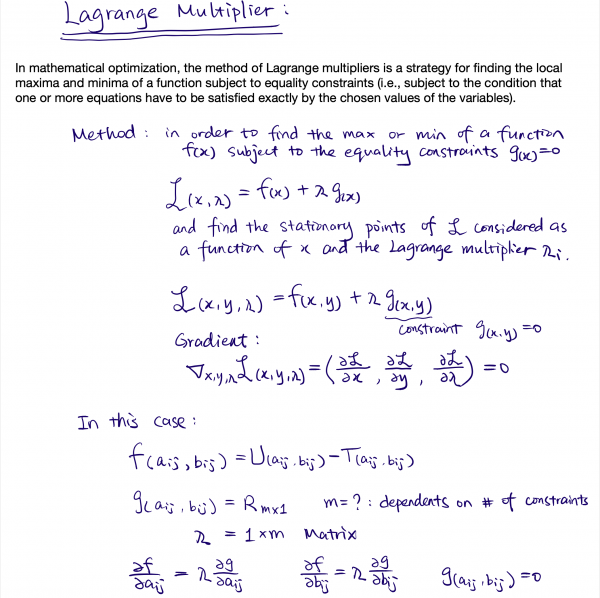 Lagrange Multiplier :
In mathematical optimization, the method of Lagrange multipliers is a strategy for finding the local
maxima and minima of a function subject to equality constraints (i.e., subject to the condition that
one or more equations have to be satisfied exactly by the chosen values of the variables).
Method : in order to find the max or min of a function
f(x) subject to the equality constraints g(x)=0
ℒ(x,λ) = f(x) + λ g(x)
and find the stationary points of ℒ considered as
a function of x and the Lagrange multiplier λi.
ℒ(x,y,λ) = f(x,y) + λ g(x,y)
constraint g(x,y)=0
Gradient :
∇x,y,λ ℒ(x,y,λ) = (∂ℒ/∂x , ∂ℒ/∂y , ∂ℒ/∂λ) = 0
In this case :
f(aij, bij) = U(aij, bij) − T(aij, bij)
g(aij, bij) = Rm×1 m=? : dependents on # of constraints
λ = 1×m Matrix
∂f/∂aij = λ ∂g/∂aij ∂f/∂bij = λ ∂g/∂bij g(aij, bij)=0